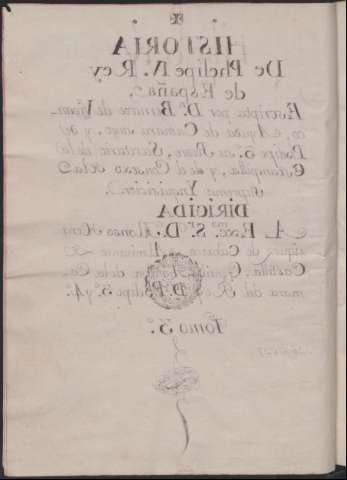 HISTORIA
De Phelipe IV. Rey
de España,
Escripta por D.ⁿ Bernave de Vivan-
co, Ayuda de Camara suyo, y de
Phelipe 3.º su Padre, Secretario de la
Estampilla, y de el Consejo de la
Suprema Ynquisicion.
DIRIGIDA
A el Exc.mo S.r D. Alonso
de Cabrera, Almirante de
Castilla,
mara del Rey D. Phelipe 3.º y 4.º
Tomo 3.º